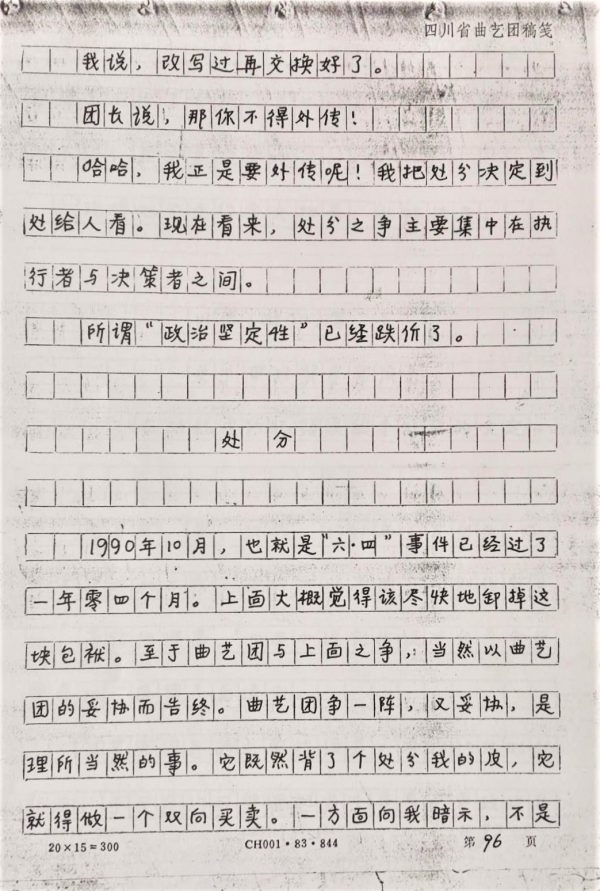 四川省曲艺团稿笺
我说，改写过再交换好了。
团长说，那你不得外传！
哈哈，我正是要外传呢！我把处分决定到
处给人看。现在看来，处分之争主要集中在执
行者与决策者之间。
所谓“政治坚定性”已经跌价了。
处 分
1990年10月，也就是“六·四”事件已经过了
一年零四个月。上面大概觉得该尽快地卸掉这
块包袱。至于曲艺团与上面之争，当然以曲艺
团的妥协而告终。曲艺团争一阵，又妥协，是
理所当然的事。它既然背了个处分我的皮，它
就得做一个双向买卖。一方面向我暗示，不是
20×15=300 CH001·83·844 第 96 页